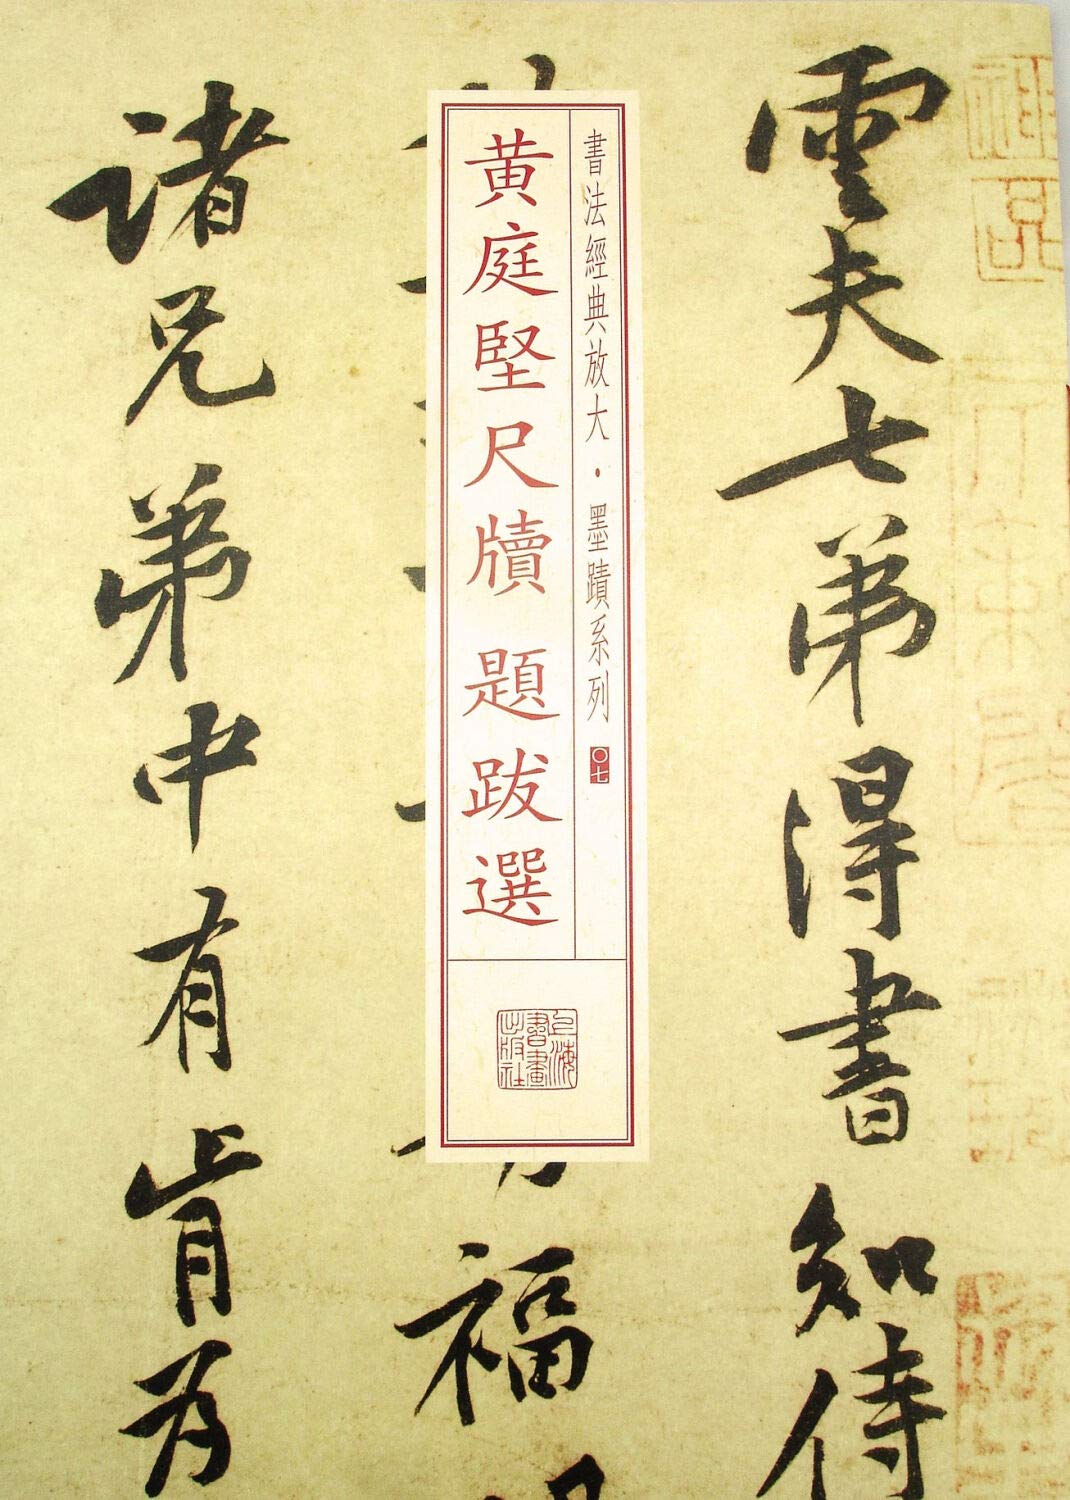 雲夫七弟得書知侍
福
諸兄弟中有肯為
書法經典放大·墨蹟系列
〇七
黄庭堅尺牘 題跋選
上海書畫出版社